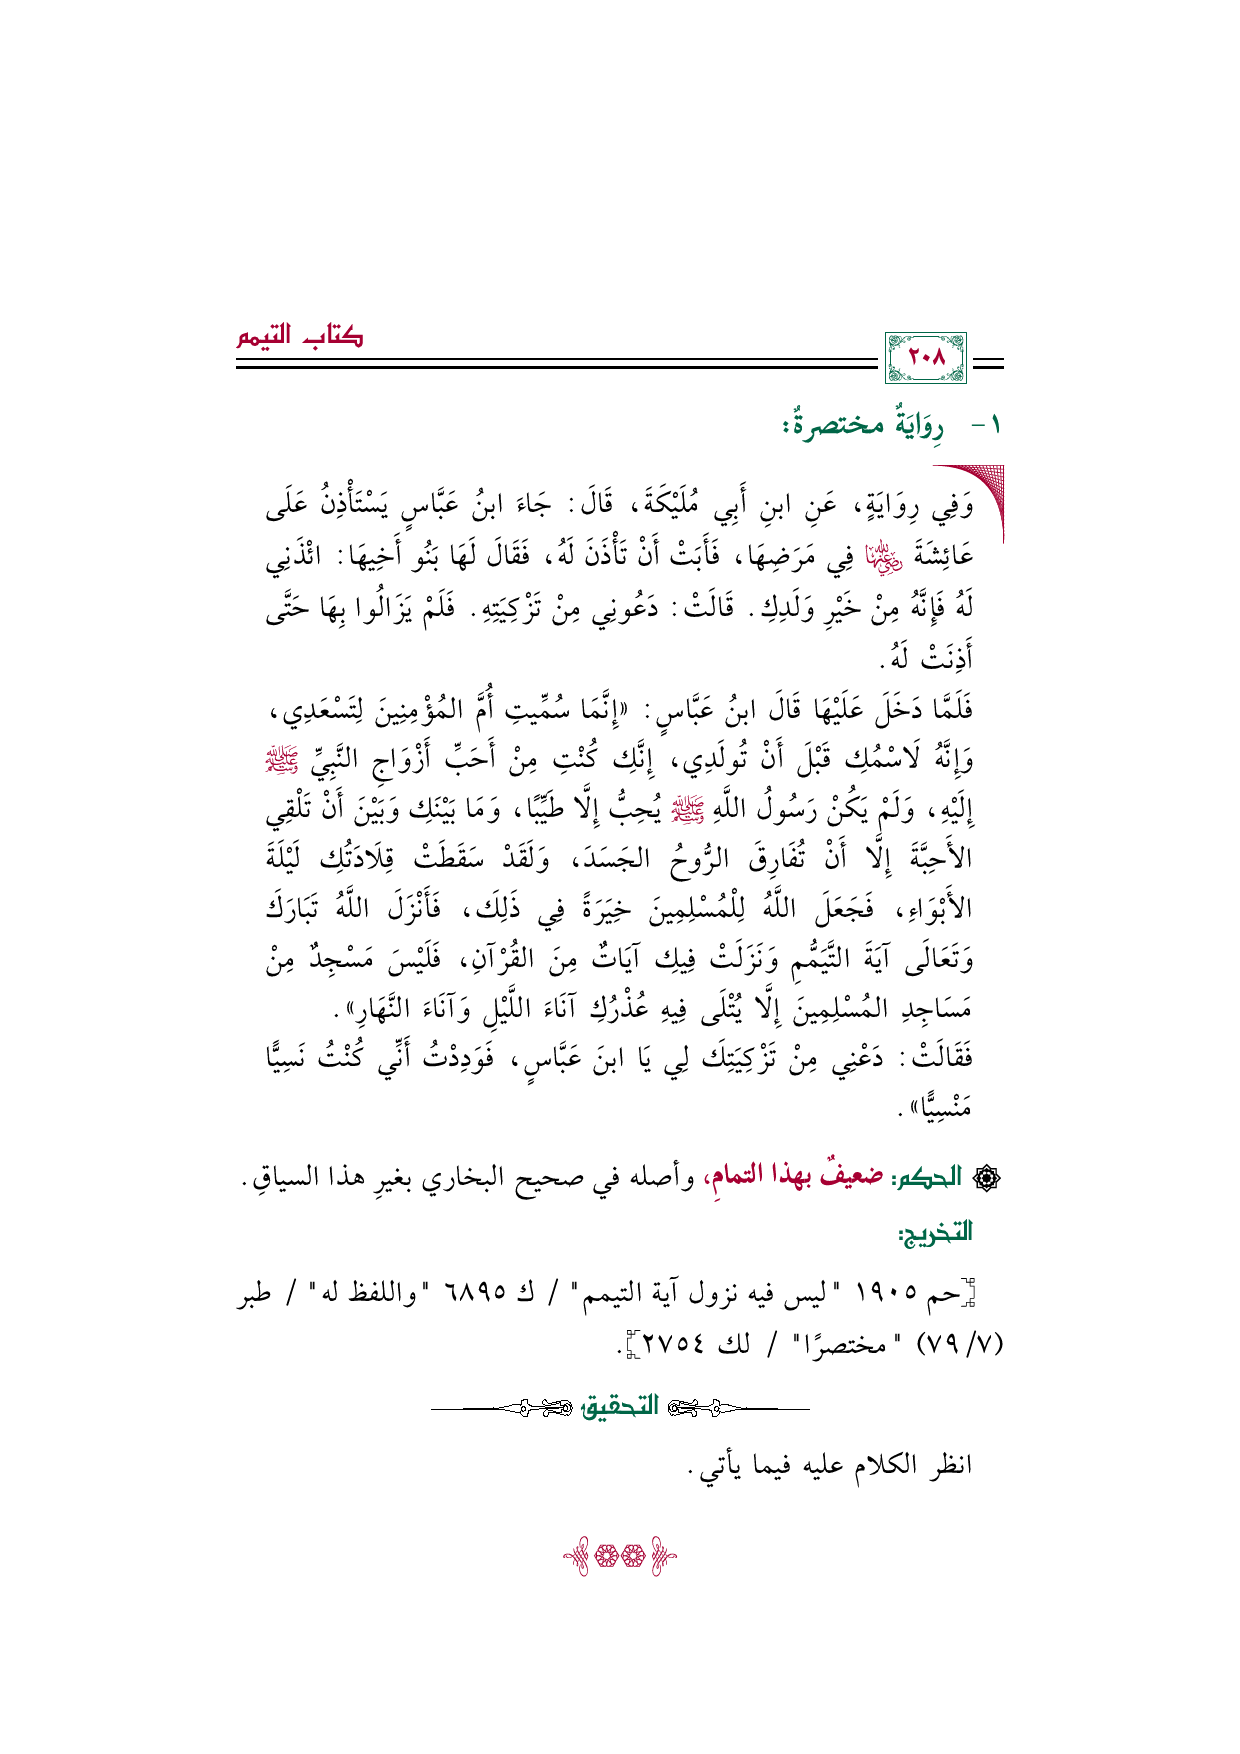 كتاب التيمم
٢٠٨
١- رِوَايَةٌ مختصرةٌ:
وَفِي رِوَايَةٍ، عَنِ ابنِ أَبِي مُلَيْكَةَ، قَالَ: جَاءَ ابنُ عَبَّاسٍ يَسْتَأْذِنُ عَلَى
عَائِشَةَ رضي الله عنها فِي مَرَضِهَا، فَأَبَتْ أَنْ تَأْذَنَ لَهُ، فَقَالَ لَهَا بَنُو أَخِيهَا: ائْذَنِي
لَهُ فَإِنَّهُ مِنْ خَيْرِ وَلَدِكِ. قَالَتْ: دَعُونِي مِنْ تَزْكِيَتِهِ. فَلَمْ يَزَالُوا بِهَا حَتَّى
أَذِنَتْ لَهُ.
فَلَمَّا دَخَلَ عَلَيْهَا قَالَ ابنُ عَبَّاسٍ: «إِنَّمَا سُمِّيتِ أُمَّ المُؤْمِنِينَ لِتَسْعَدِي،
وَإِنَّهُ لَاسْمُكِ قَبْلَ أَنْ تُولَدِي، إِنَّكِ كُنْتِ مِنْ أَحَبِّ أَزْوَاجِ النَّبِيِّ ﷺ
إِلَيْهِ، وَلَمْ يَكُنْ رَسُولُ اللَّهِ ﷺ يُحِبُّ إِلَّا طَيِّبًا، وَمَا بَيْنَكِ وَبَيْنَ أَنْ تَلْقِي
الأَحِبَّةَ إِلَّا أَنْ تُفَارِقَ الرُّوحُ الجَسَدَ، وَلَقَدْ سَقَطَتْ قِلَادَتُكِ لَيْلَةَ
الأَبْوَاءِ، فَجَعَلَ اللَّهُ لِلْمُسْلِمِينَ خِيَرَةً فِي ذَلِكَ، فَأَنْزَلَ اللَّهُ تَبَارَكَ
وَتَعَالَى آيَةَ التَّيَمُّمِ وَنَزَلَتْ فِيكِ آيَاتٌ مِنَ القُرْآنِ، فَلَيْسَ مَسْجِدٌ مِنْ
مَسَاجِدِ المُسْلِمِينَ إِلَّا يُتْلَى فِيهِ عُذْرُكِ آنَاءَ اللَّيْلِ وَآنَاءَ النَّهَارِ».
فَقَالَتْ: دَعْنِي مِنْ تَزْكِيَتِكَ لِي يَا ابنَ عَبَّاسٍ، فَوَدِدْتُ أَنِّي كُنْتُ نَسِيًّا
مَنْسِيًّا».
الحكم: ضعيفٌ بهذا التمامِ، وأصله في صحيح البخاري بغيرِ هذا السياقِ.
التخريج:
[حم ١٩٠٥ "ليس فيه نزول آية التيمم" / ك ٦٨٩٥ "واللفظ له" / طبر
(٧/ ٧٩) "مختصرًا" / لك ٢٧٥٤].
التحقيق
انظر الكلام عليه فيما يأتي.